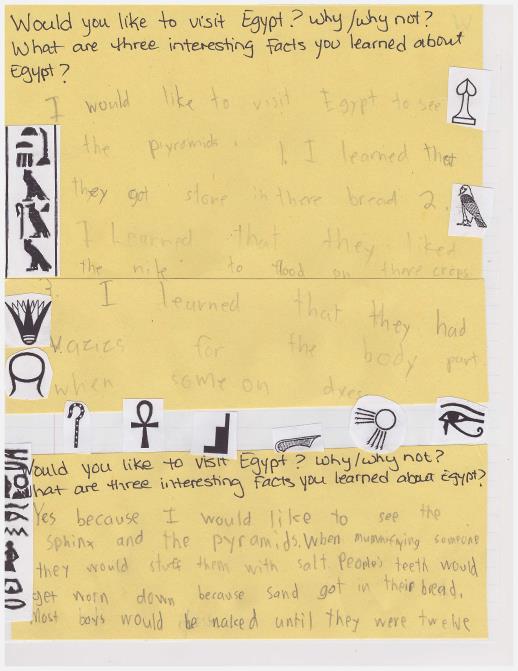 Would you like to visit Egypt? why/why not?
What are three interesting facts you learned about
Egypt?
I would like to visit Egypt to see
the pyromids. 1. I learned that
they got stone in there bread 2.
I Learned that they liked
the nile to flood on there crops
3. I learned that they had
for the body part
when some on dyes
Would you like to visit Egypt? why/why not?
What are three interesting facts you learned about Egypt?
Yes because I would like to see the
sphinx and the pyramids. When mummifying someone
they would stuff them with salt. People's teeth would
get worn down because sand got in their bread.
Most boys would be naked until they were twelve